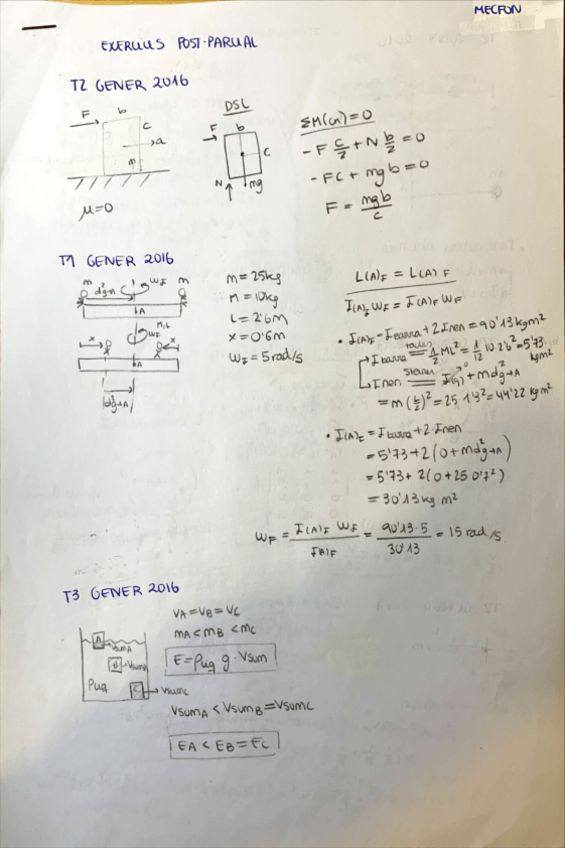 MECFON
EXERCICIS POST-PARCIAL
T2 GENER 2016
F b c a m
μ=0
DSL
F b c N mg
ΣM(cn)=0
-F c/2 + N b/2 = 0
-FC + mgb = 0
F = mgb/c
T1 GENER 2016
m m
A
x x
A
m=25kg
M=10kg
L=2'6m
x=0'6m
ωI=5rad/s
L(A)F = L(A)F
I(A)I ωF = I(A)F ωF
• I(A)F = Ibarra + 2Inen = 90'13kgm²
Ibarra = 1/12 ML² = 1/12 10 2'6² = 5'73 kgm²
taules
steiner
Inen = I(G) + md²G→A
= m(L/2)² = 25 1'3² = 44'22 kgm²
• I(A)F = Ibarra + 2·Inen
= 5'73 + 2(0+md²G→A)
= 5'73 + 2(0+25 0'7²)
= 30'13 kg m²
ωF = I(A)F ωF / I(A)F = 90'13·5 / 30'13 = 15 rad/s
T3 GENER 2016
VA=VB=VC
mA<mB<mC
E=ρliq g·Vsum
A VsumA
B VsumB
C VsumC
ρliq
VsumA < VsumB=VsumC
EA < EB = EC